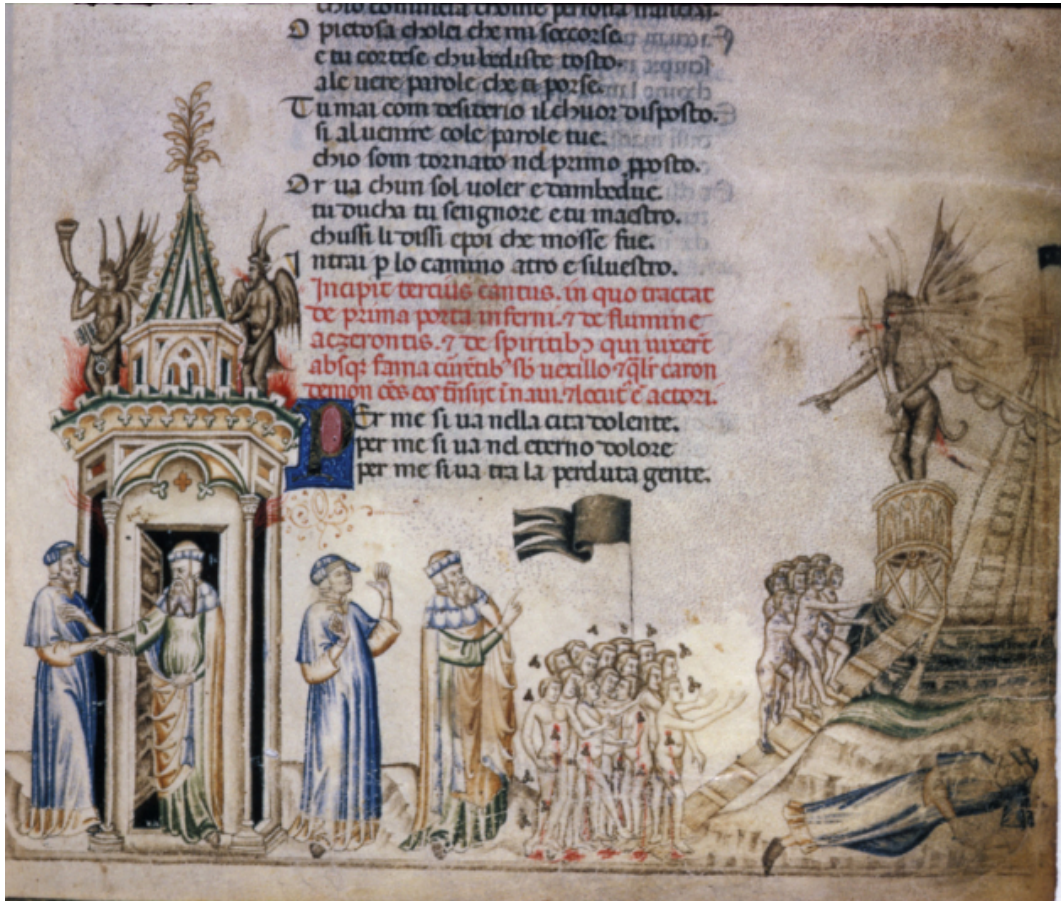 O pietosa cholei che mi soccorse.
e tu cortese chubediste tosto.
ale uere parole che ti porse.
Tu mai com desiderio il chuor disposto.
si al uenire cole parole tue.
chio som tornato nel primo pposto.
Or ua chun sol uoler e dambedue.
tu ducha tu sengnore e tu maestro.
chussi li dissi epoi che mosse fue.
Intrai p lo camino atro e siluestro.
Incipit tercius cantus. in quo tractat
de prima porta inferni. ⁊ de flumine
aczerontis. ⁊ de spiritibꝫ qui uixert
absqꝫ fama
demon
PEr me si ua nella cita dolente.
per me si ua nel eterno dolore
per me si ua tra la perduta gente.